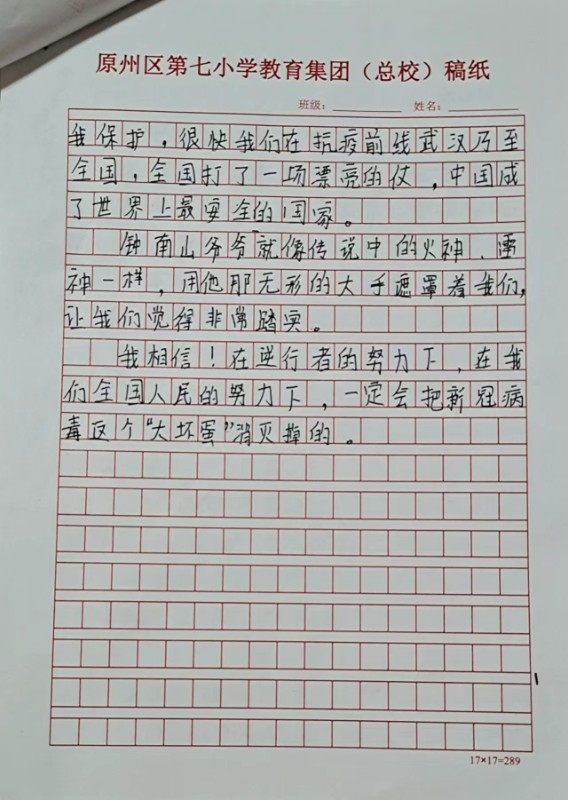 原州区第七小学教育集团（总校）稿纸
班级：
姓名：
我保护，很快我们在抗疫前线武汉乃至
全国，全国打了一场漂亮的仗，中国成
了世界上最安全的国家。
钟南山爷爷就像传说中的火神、雷
神一样，用他那无形的大手遮罩着我们，
让我们觉得非常踏实。
我相信！在逆行者的努力下，在我
们全国人民的努力下，一定会把新冠病
毒这个“大坏蛋”消灭掉的。
17×17=289